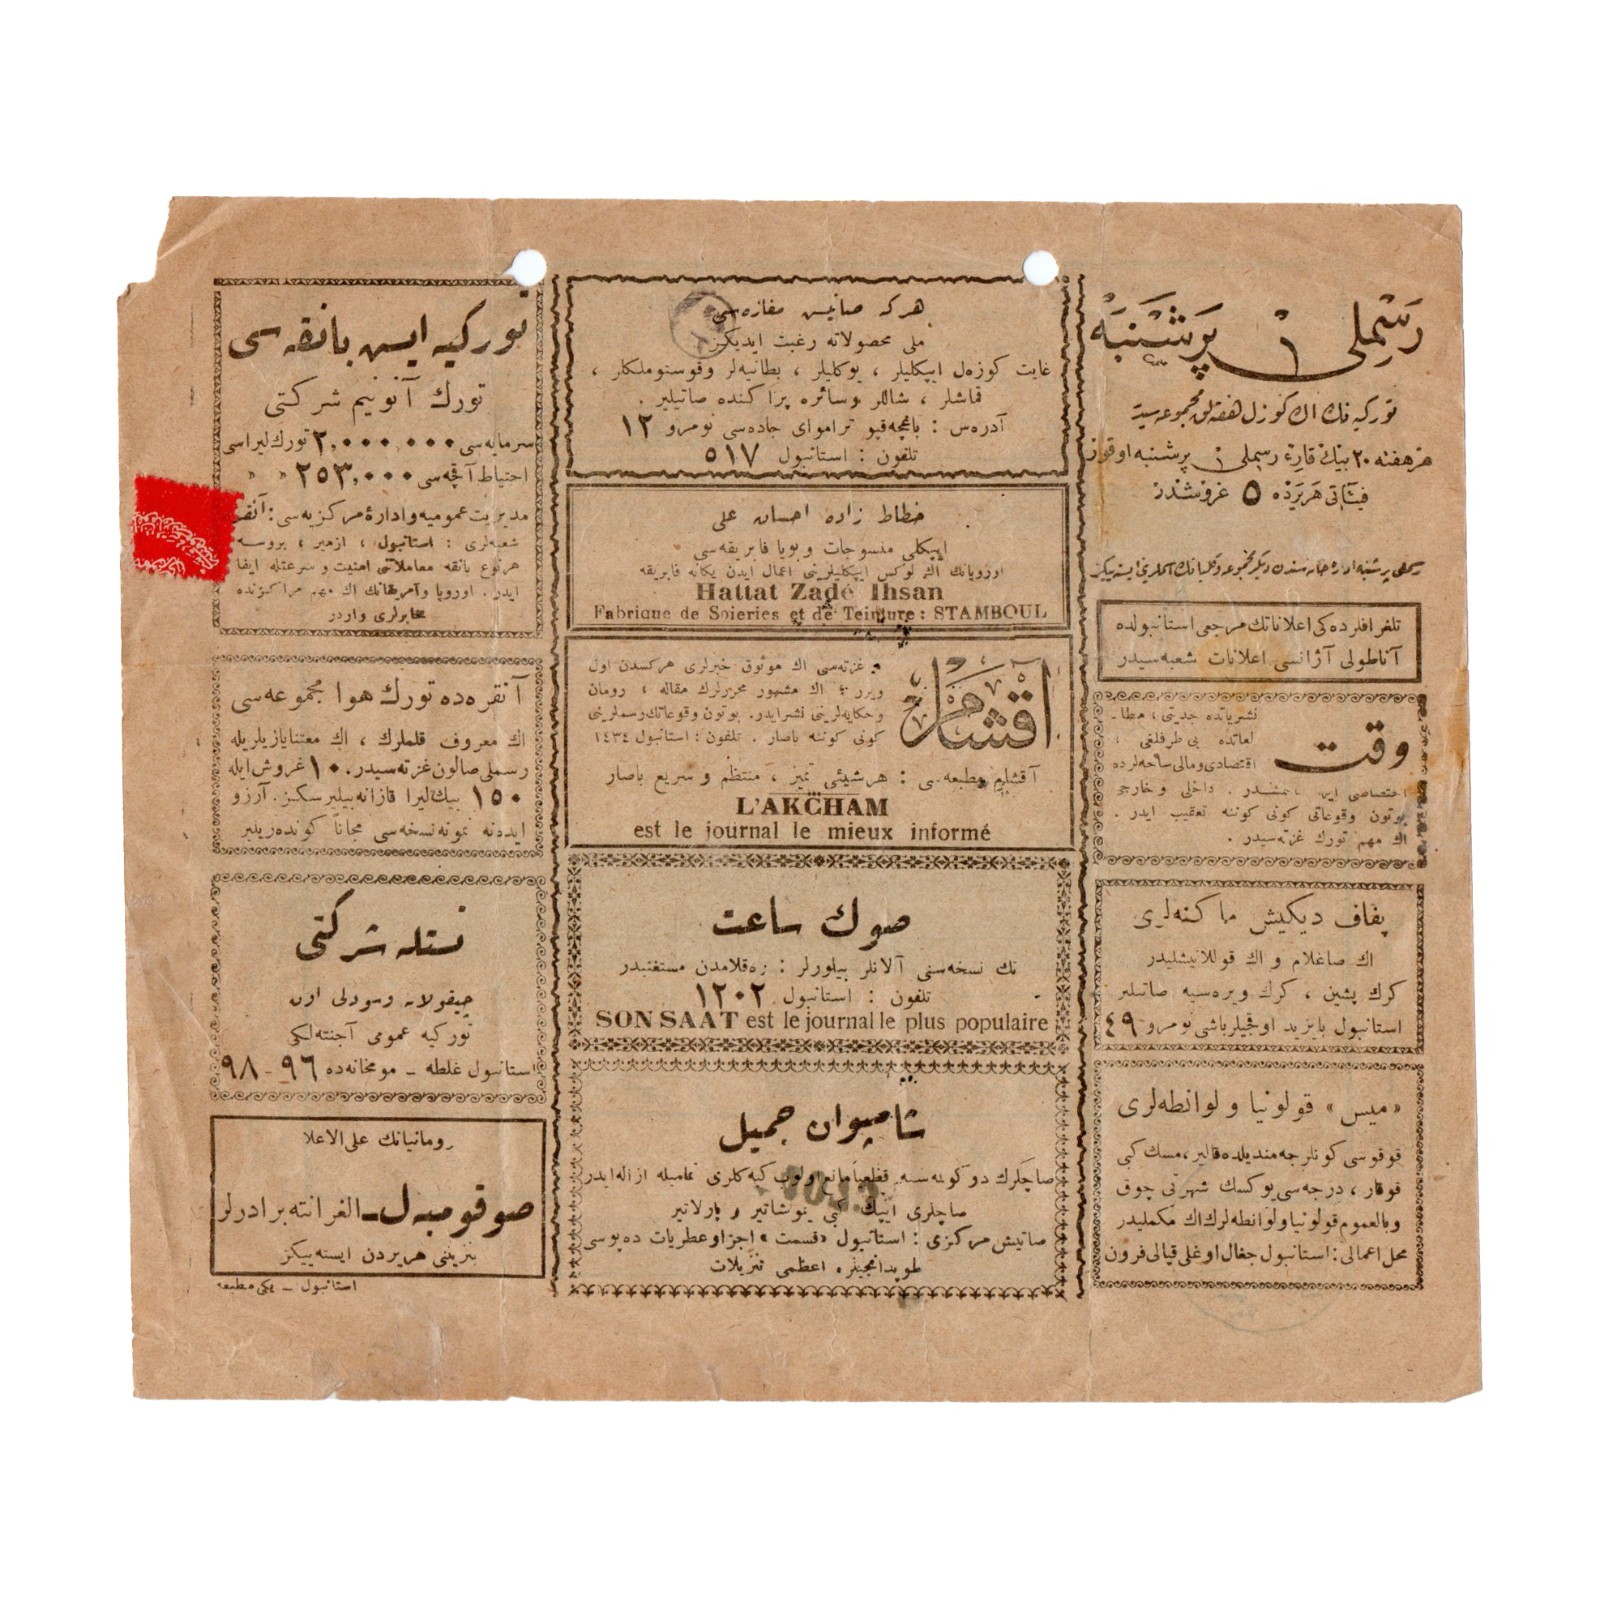 رسملی ١ پرشنبه
توركیه نك اك كوزل هفته‌لق مجموعه‌سیدر
هر هفته ٢٠ بیك قاریء رسملی ١ پرشنبه اوقور
فیئاتی هر یرده ٥ غروشدر
تلغرافلرده‌كی اعلاناتك مرجعی استانبولده
آناطولی آژانسی اعلانات شعبه‌سیدر
وقت
نشریاتده جدیتی ، مطا-
لعاتده بی طرفلغی ،
اقتصادی و مالی ساحه‌لرده
داخلی و خارجی
بوتون وقوعاتی كونی كوننه تعقیب ایدر .
اك مهم تورك غزته‌سیدر .
پفاف دیكیش ماكنه‌لری
اك صاغلام و اك قوللانیشلیدر
كرك پشین ، كرك ویره‌سیه صاتیلیر
استانبول بایزید اوقجیلرباشی نومرو ٤٩
«میس» قولونیا و لوانطه‌لری
قوقوسی كونلرجه مندیلده قالیر، مسك كبی
قوقار ، درجه‌سی یوكسك شهرتی چوق
وبالعموم قولونیا ولوانطه‌لرك اك مكملیدر
محل اعمالی : استانبول جغال اوغلی قپالی فرون
هركه صاتیش مغازه‌سی
ملی محصولاته رغبت ایدیكز
غایت كوزه‌ل ایپكلیلر ، یوكلیلر ، بطانیه‌لر وقوستوملكلر ،
قماشلر ، شاللر وسائره پراكنده صاتیلیر .
آدره‌س : باغچه‌قپو تراموای جاده‌سی نومرو ١٢
تلفون : استانبول ٥١٧
خطاط زاده احسان علی
ایپكلی منسوجات و بویا فابریقه‌سی
اوروپانك اك لوكس ایپكلیلرینی اعمال ایدن یكانه فابریقه
Hattat Zadé Ihsan
Fabrique de Soieries et de Teinture : STAMBOUL
آقشام
غزته‌سی اك موثوق خبرلری هركسدن اول
ویرر ؛ اك مشهور محررلرك مقاله ، رومان
وحكایه‌لرینی نشر ایدر. بوتون وقوعاتك رسملرینی
كونی كوننه باصار . تلفون : استانبول ١٤٣٤
آقشام مطبعه‌سی : هرشیئی تمیز ، منتظم و سریع باصار
L'AKCHAM
est le journal le mieux informé
صوك ساعت
تك نسخه‌سنی آلانلر بیلورلر : ره‌قلامدن مستغنیدر
تلفون : استانبول ١٢٠٢
SON SAAT est le journal le plus populaire
شامپوان جمیل
صاچلرك دوكولمه‌سنه قطعیاً مانع اولوب كپه‌كلری تمامیله ازاله ایدر
صاچلری ایپك كبی یموشاتیر و پارلاتیر
صاتیش مركزی : استانبول «قسمت» اجزا وعطریات ده‌پوسی
طوپدانجیلره اعظمی تنزیلات
توركیه ایش بانقه‌سی
تورك آنونیم شركتی
سرمایه‌سی ٢,٠٠٠,٠٠٠ تورك لیراسی
احتیاط آقچه‌سی ٢٥٣,٠٠٠ « «
مدیریت عمومیه واداره‌ٔ مركزیه‌سی : آنقره
شعبه‌لری : استانبول ، ازمیر ، بروسه
هرنوع بانقه معاملاتی امنیت و سرعتله ایفا
ایدر. اوروپا وآمریقانك اك مهم مراكزنده
مخابرلری واردر
آنقره‌ده تورك هوا مجموعه‌سی
اك معروف قلملرك ، اك معتنا یازیلریله
رسملی صالون غزته‌سیدر. ١٠ غروش ایله
١٥٠ بیك لیرا قازانه‌بیلیرسكز. آرزو
ایدنه نمونه نسخه‌سی مجاناً كونده‌ریلیر
نستله شركتی
چیقولاته وسودلی اون
توركیه عمومی آجنته‌لكی
استانبول غلطه – مومخانه‌ده ٩٦ - ٩٨
رومانیانك علی الاعلا
صوقومبه‌ل - الغرانته برادرلر
بنزینی هر یردن ایسته‌ییكز
استانبول – یكی مطبعه